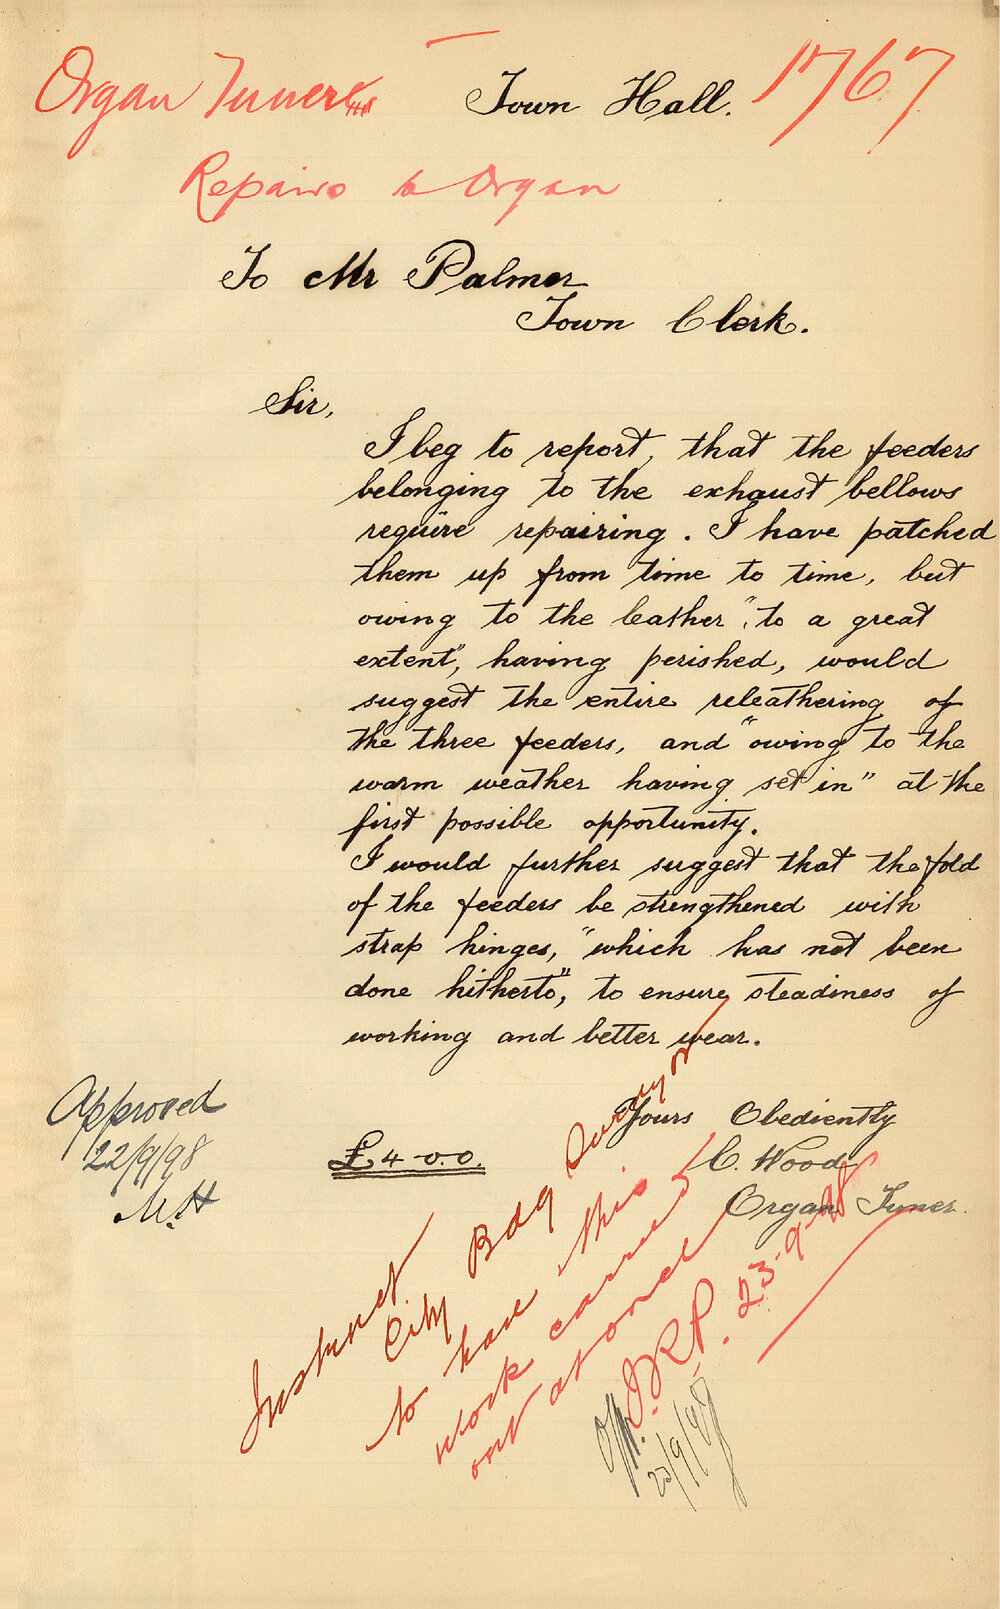 Organ Tuner
Town Hall.
1767
Repairs to Organ
To Mr Palmer
Town Clerk.
Sir,
I beg to report, that the feeders
belonging to the exhaust bellows
require repairing. I have patched
them up from time to time, but
owing to the leather "to a great
extent", having perished, would
suggest the entire releathering of
the three feeders, and "owing to the
warm weather having set in" at the
first possible opportunity.
I would further suggest that the fold
of the feeders be strengthened with
strap hinges, "which has not been
done hitherto", to ensure steadiness of
working and better wear.
Yours Obediently
C. Wood
Organ Tuner.
£4-0.0.
Approved
22/9/98
Instruct
City Bdg Surveyor
to have this
work carried
out at once
23.9.98